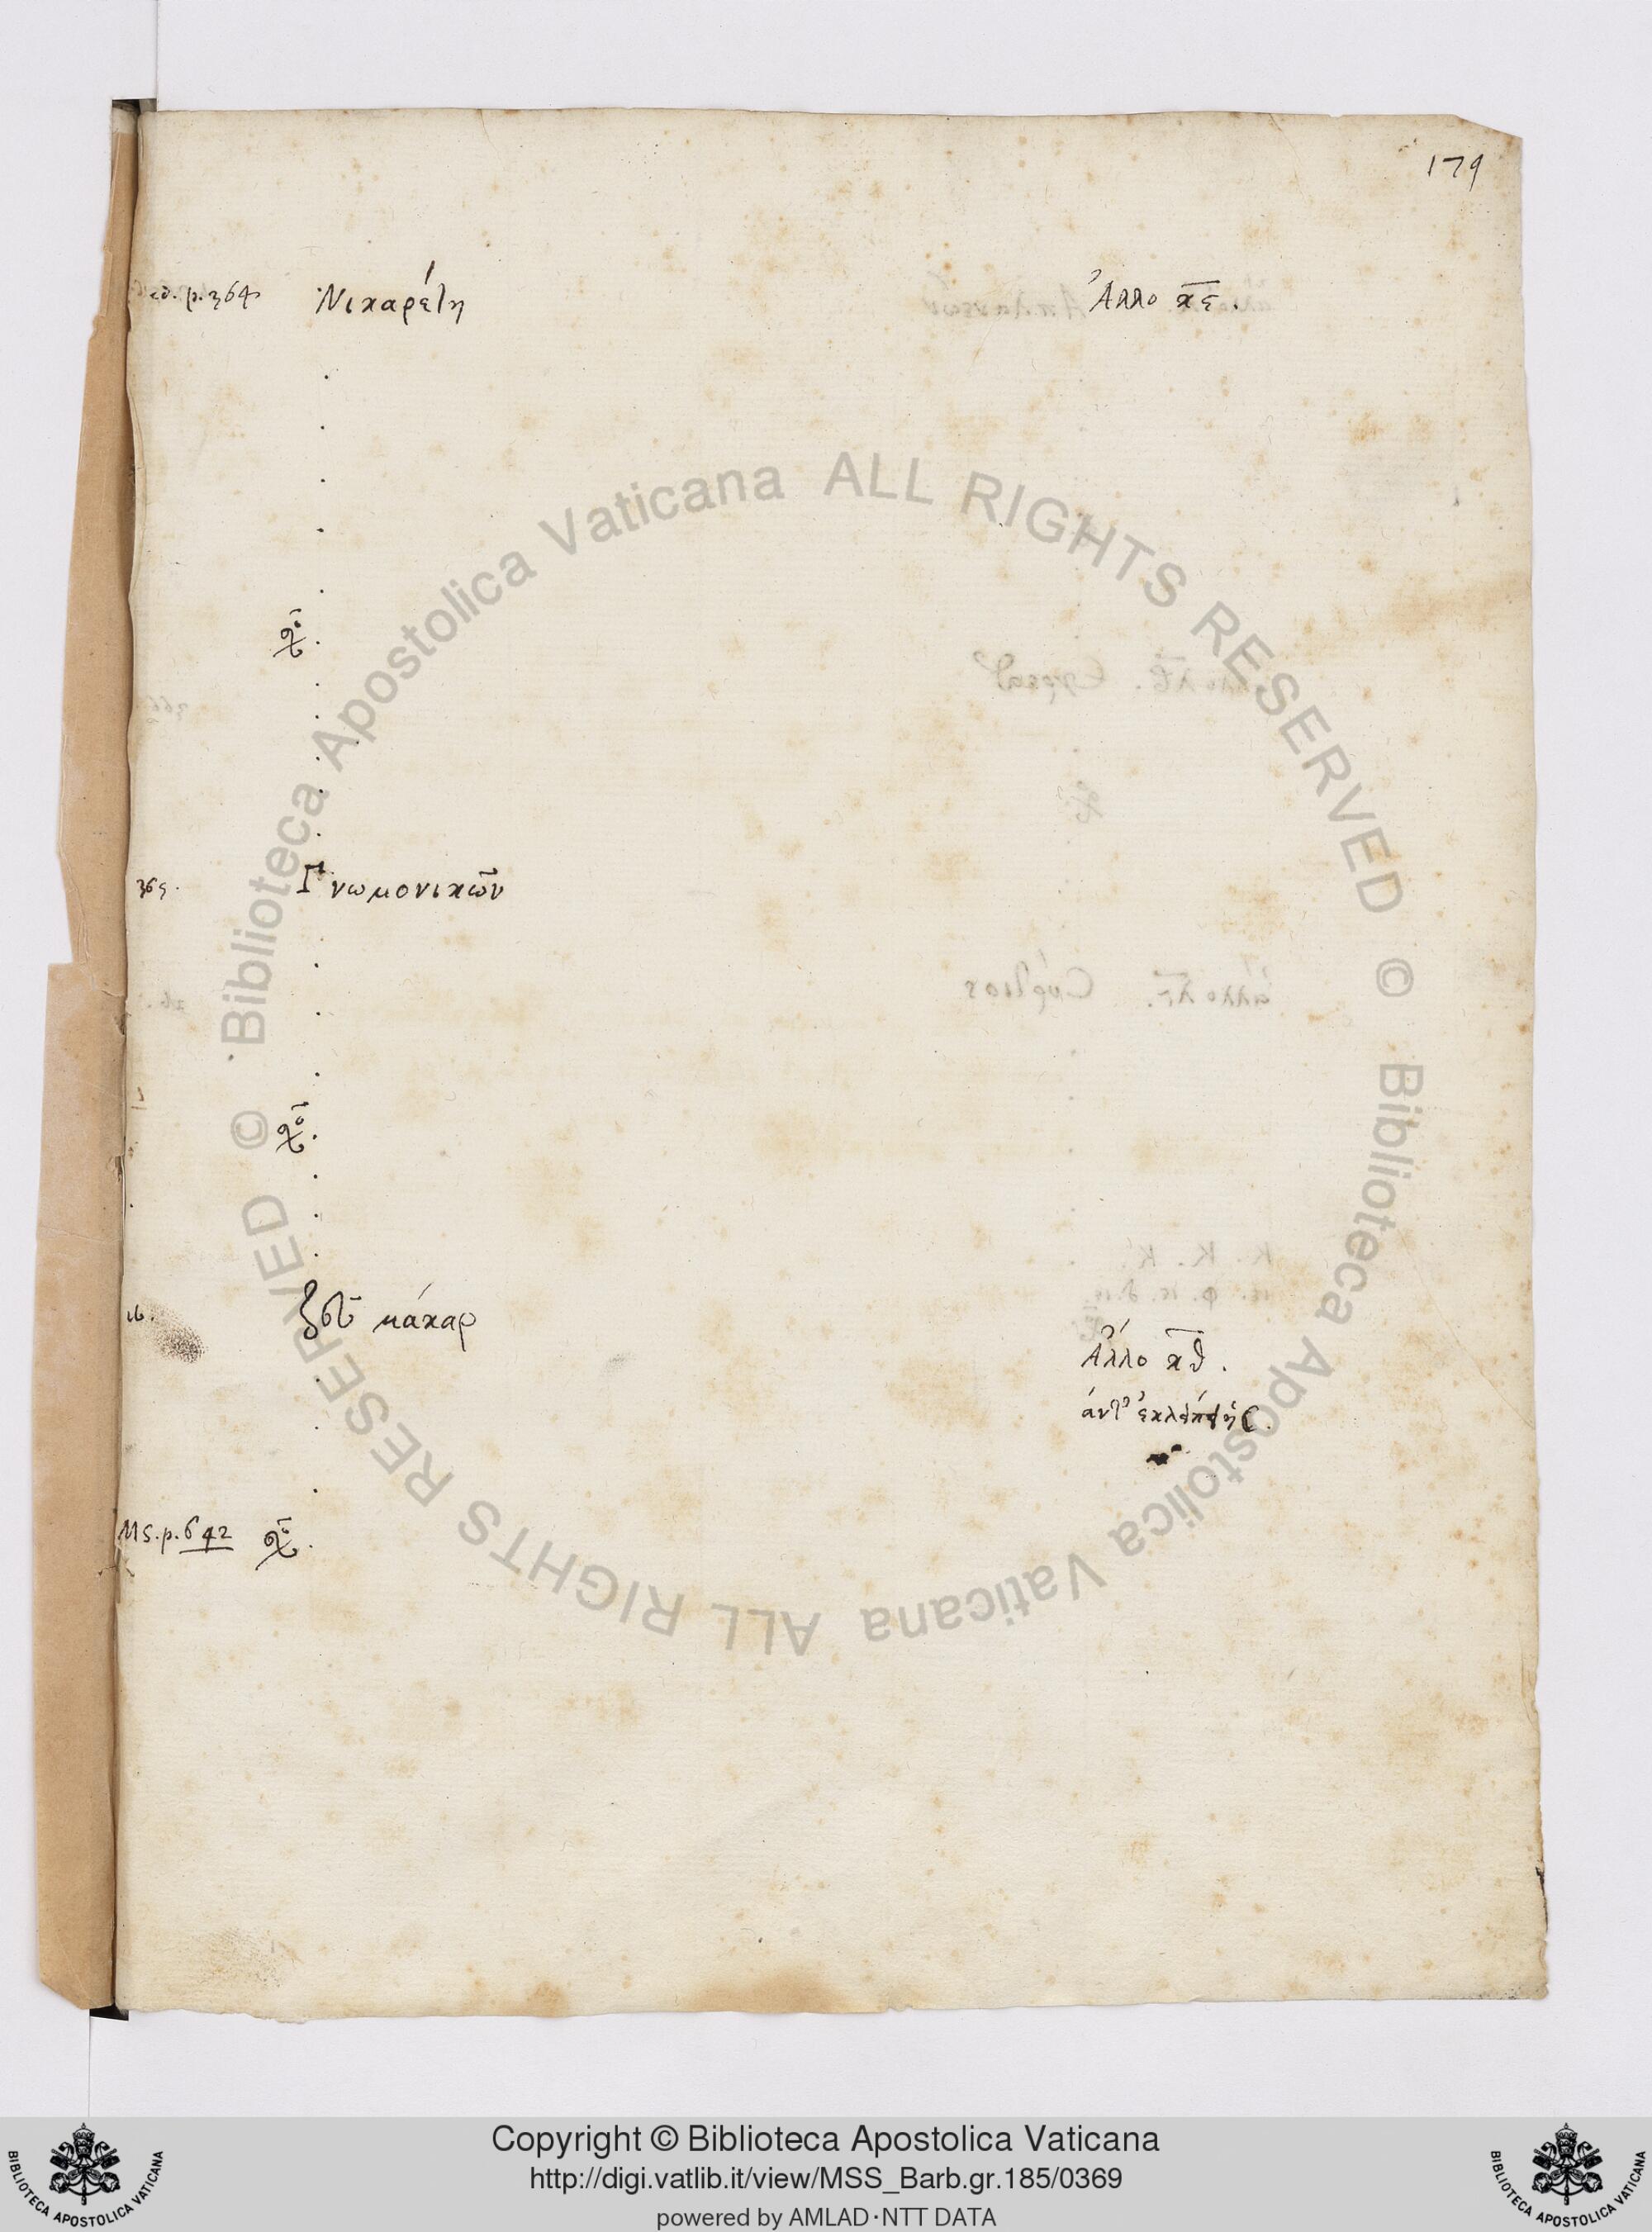 179
ed. p. 364 Νικαρέτη Ἄλλο κς.
365. Γνωμονικῶν
ib. ζεῦ μάκαρ
Ἄλλο κθ.
ἀντὶ
MS. p. 642
© Biblioteca Apostolica Vaticana ALL RIGHTS RESERVED
© Biblioteca Apostolica Vaticana ALL RIGHTS RESERVED
Copyright © Biblioteca Apostolica Vaticana
http://digi.vatlib.it/view/MSS_Barb.gr.185/0369
powered by AMLAD·NTT DATA
BIBLIOTECA APOSTOLICA VATICANA
BIBLIOTECA APOSTOLICA VATICANA